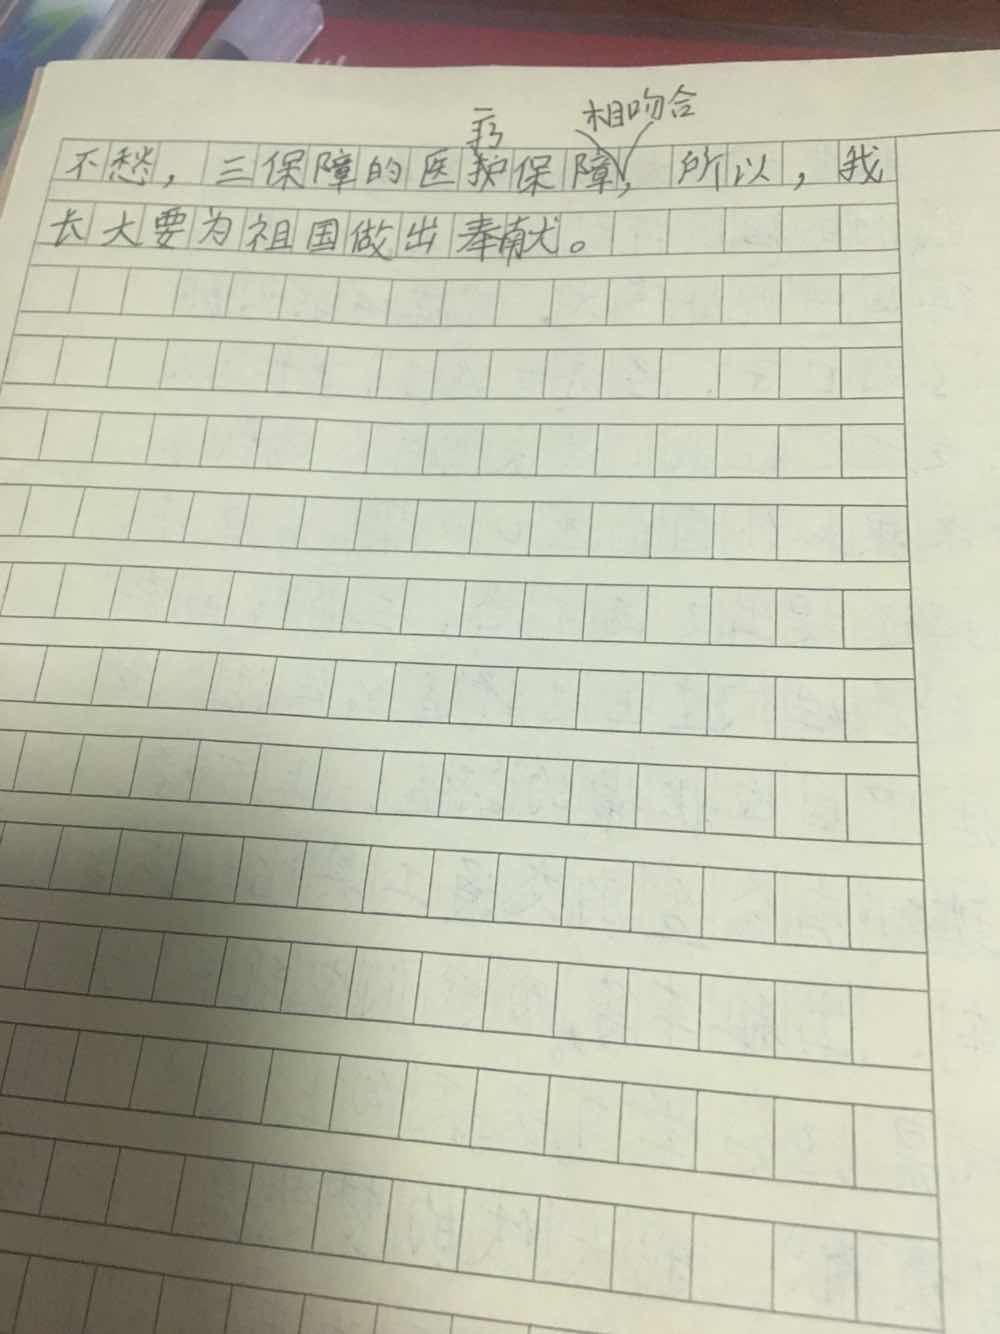 疗
相吻合
不愁，三保障的医护保障，所以，我
长大要为祖国做出奉献。